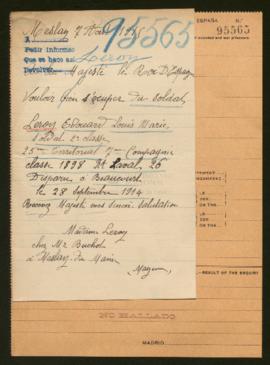 95565
ESPAÑA N.°
95565
Pedir informe
Que se haga así
Devolver
Leroy
Majesté le Roi D'Espagne
Vouloir bien s'occuper du soldat
Leroy Edouard Louis Marie
Soldat 2e classe
25e territorial 7e Compagnie
classe 1898 Laval, 26
Disparu à Beaucourt
le 28 Septembre 1914
Recevez Majesté mes sincères Salutations
Madame Leroy
chez Mr
à Meslay du Maine
Mayenne
RESULT OF THE ENQUIRY
NO HALLADO
MADRID